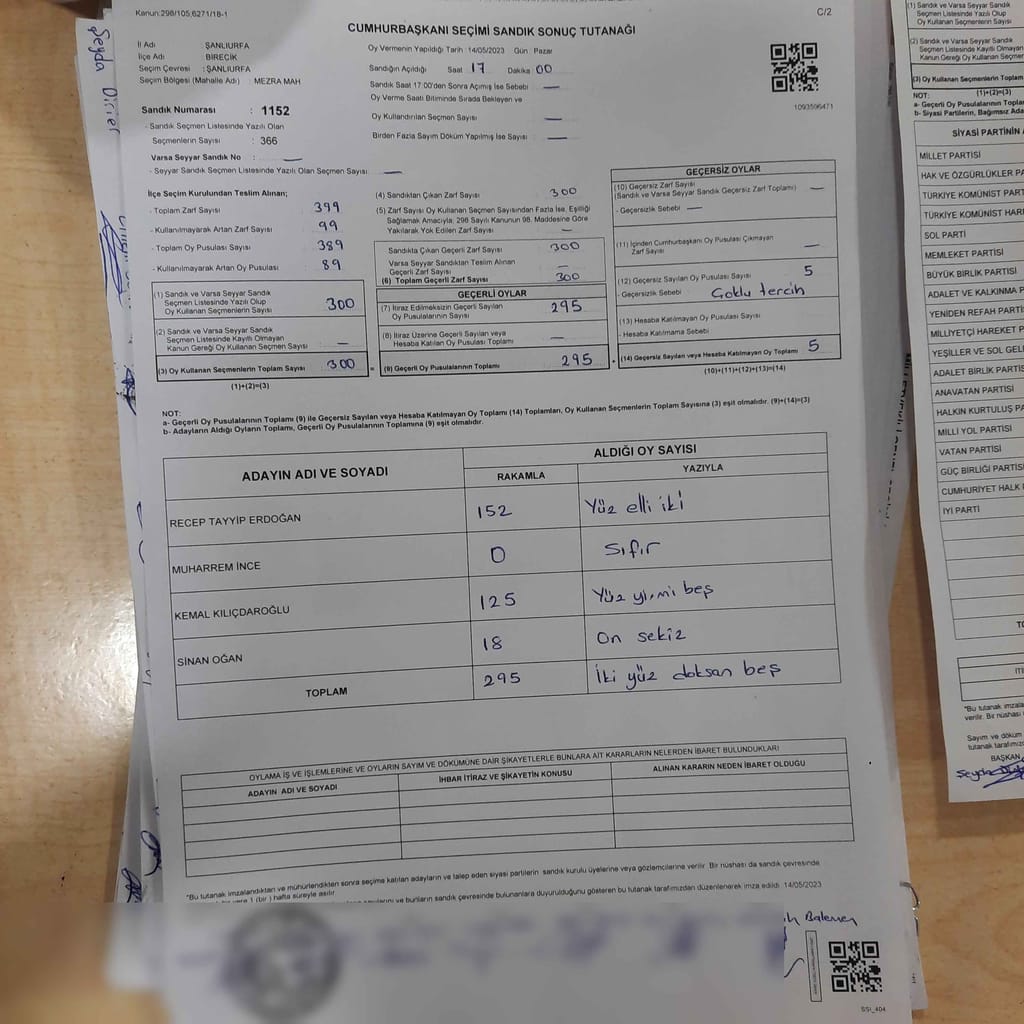 Kanun:298/105,6271/18-1
C/2
CUMHURBAŞKANI SEÇİMİ SANDIK SONUÇ TUTANAĞI
İl Adı : ŞANLIURFA
İlçe Adı : BİRECİK
Seçim Çevresi : ŞANLIURFA
Seçim Bölgesi (Mahalle Adı) : MEZRA MAH
Sandık Numarası : 1152
- Sandık Seçmen Listesinde Yazılı Olan
Seçmenlerin Sayısı : 366
Varsa Seyyar Sandık No : —
- Seyyar Sandık Seçmen Listesinde Yazılı Olan Seçmen Sayısı : —
Oy Vermenin Yapıldığı Tarih : 14/05/2023 Gün : Pazar
Sandığın Açıldığı Saat 17 Dakika 00
Sandık Saat 17:00'den Sonra Açılmış İse Sebebi : —
Oy Verme Saati Bitiminde Sırada Bekleyen ve
Oy Kullandırılan Seçmen Sayısı : —
Birden Fazla Sayım Döküm Yapılmış İse Sayısı : —
1093596471
İlçe Seçim Kurulundan Teslim Alınan;
- Toplam Zarf Sayısı 399
- Kullanılmayarak Artan Zarf Sayısı 99
- Toplam Oy Pusulası Sayısı 389
- Kullanılmayarak Artan Oy Pusulası 89
(1) Sandık ve Varsa Seyyar Sandık
Seçmen Listesinde Yazılı Olup
Oy Kullanan Seçmenlerin Sayısı 300
(2) Sandık ve Varsa Seyyar Sandık
Seçmen Listesinde Kayıtlı Olmayan
Kanun Gereği Oy Kullanan Seçmen Sayısı —
(3) Oy Kullanan Seçmenlerin Toplam Sayısı 300
(1)+(2)=(3)
(4) Sandıktan Çıkan Zarf Sayısı 300
(5) Zarf Sayısı Oy Kullanan Seçmen Sayısından Fazla İse, Eşitliği
Sağlamak Amacıyla, 298 Sayılı Kanunun 98. Maddesine Göre
Yakılarak Yok Edilen Zarf Sayısı —
Sandıkta Çıkan Geçerli Zarf Sayısı 300
Varsa Seyyar Sandıktan Teslim Alınan
Geçerli Zarf Sayısı —
(6) Toplam Geçerli Zarf Sayısı 300
GEÇERLİ OYLAR
(7) İtiraz Edilmeksizin Geçerli Sayılan
Oy Pusulasının Sayısı 295
(8) İtiraz Üzerine Geçerli Sayılan veya
Hesaba Katılan Oy Pusulası Toplamı —
(9) Geçerli Oy Pusulalarının Toplamı 295
GEÇERSİZ OYLAR
(10) Geçersiz Zarf Sayısı
(Sandık ve Varsa Seyyar Sandık Geçersiz Zarf Toplamı) —
- Geçersizlik Sebebi —
(11) İçinden Cumhurbaşkanı Oy Pusulası Çıkmayan
Zarf Sayısı —
(12) Geçersiz Sayılan Oy Pusulası Sayısı 5
- Geçersizlik Sebebi Çoklu tercih
(13) Hesaba Katılmayan Oy Pusulası Sayısı
- Hesaba Katılmama Sebebi
(14) Geçersiz Sayılan veya Hesaba Katılmayan Oy Toplamı 5
(10)+(11)+(12)+(13)=(14)
NOT:
a- Geçerli Oy Pusulalarının Toplamı (9) ile Geçersiz Sayılan veya Hesaba Katılmayan Oy Toplamı (14) Toplamları, Oy Kullanan Seçmenlerin Toplam Sayısına (3) eşit olmalıdır. (9)+(14)=(3)
b- Adayların Aldığı Oyların Toplamı, Geçerli Oy Pusulalarının Toplamına (9) eşit olmalıdır.
ADAYIN ADI VE SOYADI
ALDIĞI OY SAYISI
RAKAMLA YAZIYLA
RECEP TAYYİP ERDOĞAN 152 Yüz elli iki
MUHARREM İNCE 0 Sıfır
KEMAL KILIÇDAROĞLU 125 Yüz yirmi beş
SİNAN OĞAN 18 On sekiz
TOPLAM 295 İki yüz doksan beş
OYLAMA İŞ VE İŞLEMLERİNE VE OYLARIN SAYIM VE DÖKÜMÜNE DAİR ŞİKAYETLERLE BUNLARA AİT KARARLARIN NELERDEN İBARET BULUNDUKLARI
ADAYIN ADI VE SOYADI İHBAR İTİRAZ VE ŞİKAYETİN KONUSU ALINAN KARARIN NEDEN İBARET OLDUĞU
*Bu tutanak imzalandıktan ve mühürlendikten sonra seçime katılan adayların ve talep eden siyasi partilerin sandık kurulu üyelerine veya gözlemcilerine verilir. Bir nüshası da sandık çevresinde
1 (bir) hafta süreyle asılır.
ve bunların sandık çevresinde bulunanlara duyurulduğunu gösteren bu tutanak tarafımızdan düzenlenerek imza edildi. 14/05/2023
SSI_404
Şeyda
(1) Sandık ve Varsa Seyyar Sandık
Seçmen Listesinde Yazılı Olup
Oy Kullanan Seçmenlerin Sayısı
(2) Sandık ve Varsa Seyyar Sandık
Seçmen Listesinde Kayıtlı Olmayan
Kanun Gereği Oy Kullanan Seçmen
(3) Oy Kullanan Seçmenlerin Toplam
(1)+(2)=(3)
NOT:
a- Geçerli Oy Pusulalarının
b- Siyasi Partilerin, Bağımsız
SİYASİ PARTİNİN
MİLLET PARTİSİ
HAK VE ÖZGÜRLÜKLER
TÜRKİYE KOMÜNİST
TÜRKİYE KOMÜNİST
SOL PARTİ
MEMLEKET PARTİSİ
BÜYÜK BİRLİK PARTİSİ
ADALET VE KALKINMA
YENİDEN REFAH
MİLLİYETÇİ HAREKET
YEŞİLLER VE SOL
ADALET BİRLİK
ANAVATAN PARTİSİ
HALKIN KURTULUŞ
MİLLİ YOL PARTİSİ
VATAN PARTİSİ
GÜÇ BİRLİĞİ PARTİSİ
CUMHURİYET HALK
İYİ PARTİ
*Bu tutanak
verilir. Bir nüshası
Sayım ve döküm
tutanak tarafımızdan
BAŞKAN